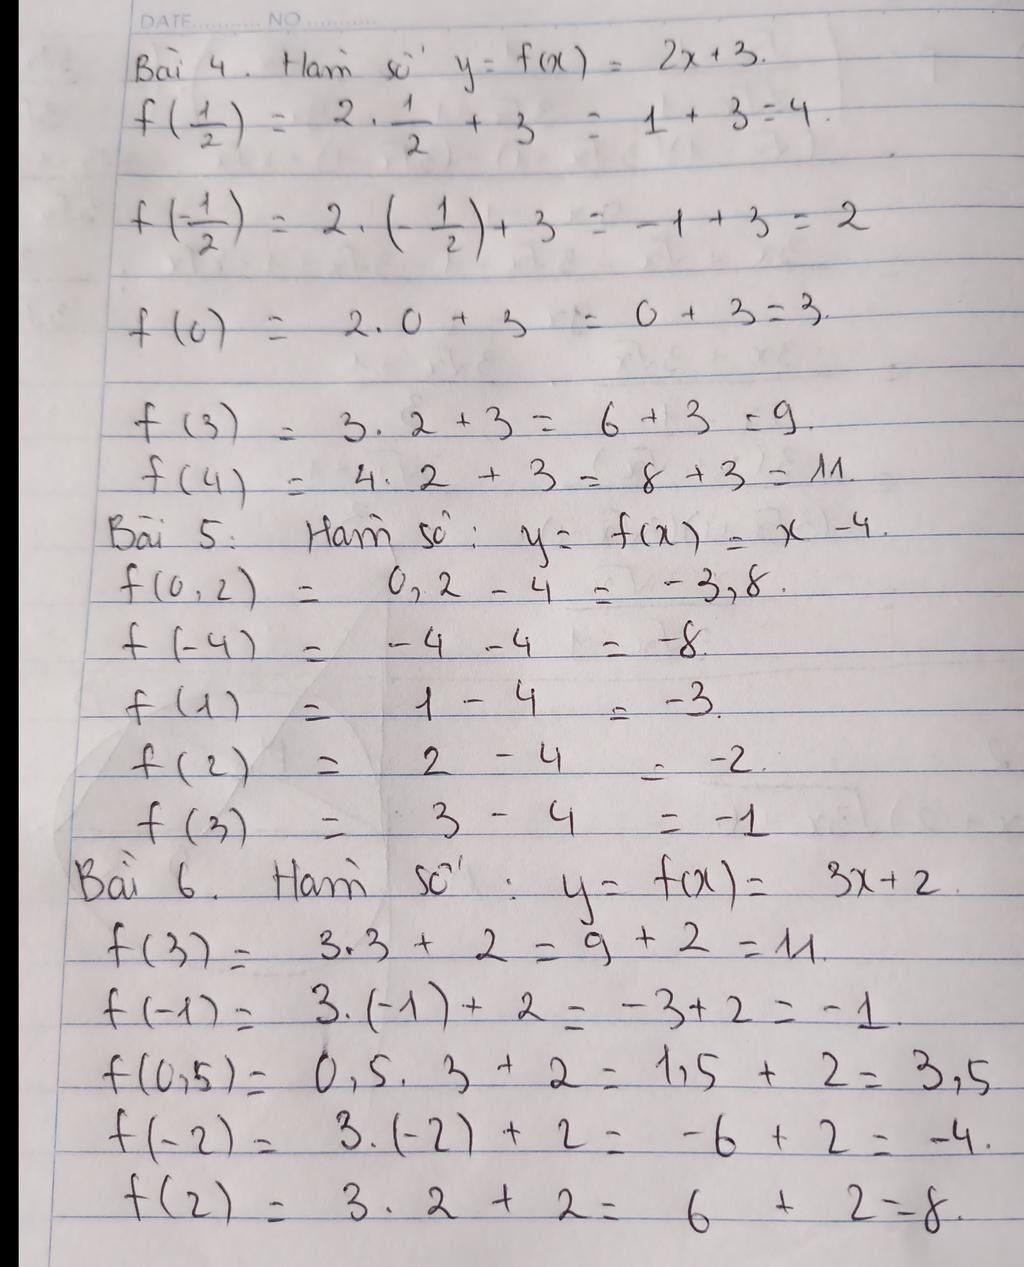 DATE............ NO............
Bài 4. Hàm số y = f(x) = 2x + 3.
f(1/2) = 2. 1/2 + 3 = 1 + 3 = 4.
f(-1/2) = 2. (-1/2) + 3 = -1 + 3 = 2
f(0) = 2.0 + 3 = 0 + 3 = 3.
f(3) = 3. 2 + 3 = 6 + 3 = 9.
f(4) = 4. 2 + 3 = 8 + 3 = 11.
Bài 5: Hàm số: y = f(x) = x - 4.
f(0,2) = 0,2 - 4 = -3,8.
f(-4) = -4 - 4 = -8.
f(1) = 1 - 4 = -3.
f(2) = 2 - 4 = -2.
f(3) = 3 - 4 = -1
Bài 6. Hàm số: y = f(x) = 3x + 2.
f(3) = 3.3 + 2 = 9 + 2 = 11.
f(-1) = 3.(-1) + 2 = -3 + 2 = -1.
f(0,5) = 0,5. 3 + 2 = 1,5 + 2 = 3,5
f(-2) = 3.(-2) + 2 = -6 + 2 = -4.
f(2) = 3. 2 + 2 = 6 + 2 = 8.